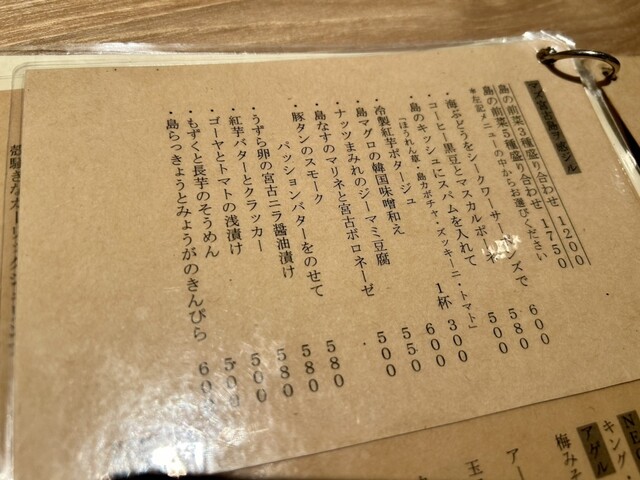 宮古島ヲ感ジル
島の前菜3種盛り合わせ 1200
島の前菜5種盛り合わせ 1750
*左記メニューの中からお選びください
・海ぶどうをシークワーサーポンズで 600
・コーヒー黒豆とマスカルポーネ 580
・島のキッシュにスパムを入れて 500
(ほうれん草・島カボチャ・ズッキーニ・トマト)
・冷製紅芋ポタージュ 1杯 300
・島マグロの韓国味噌和え 600
・ナッツまみれのジーマミ豆腐 550
・島なすのマリネと宮古ボロネーゼ 500
・豚タンのスモーク
パッションバターをのせて 580
・うずら卵の宮古ニラ醤油漬け 580
・紅芋バターとクラッカー 580
・ゴーヤとトマトの浅漬け 500
・もずくと長芋のそうめん 500
・島らっきょうとみょうがのきんぴら 600
キング
アゲル
梅みそ
アー
玉